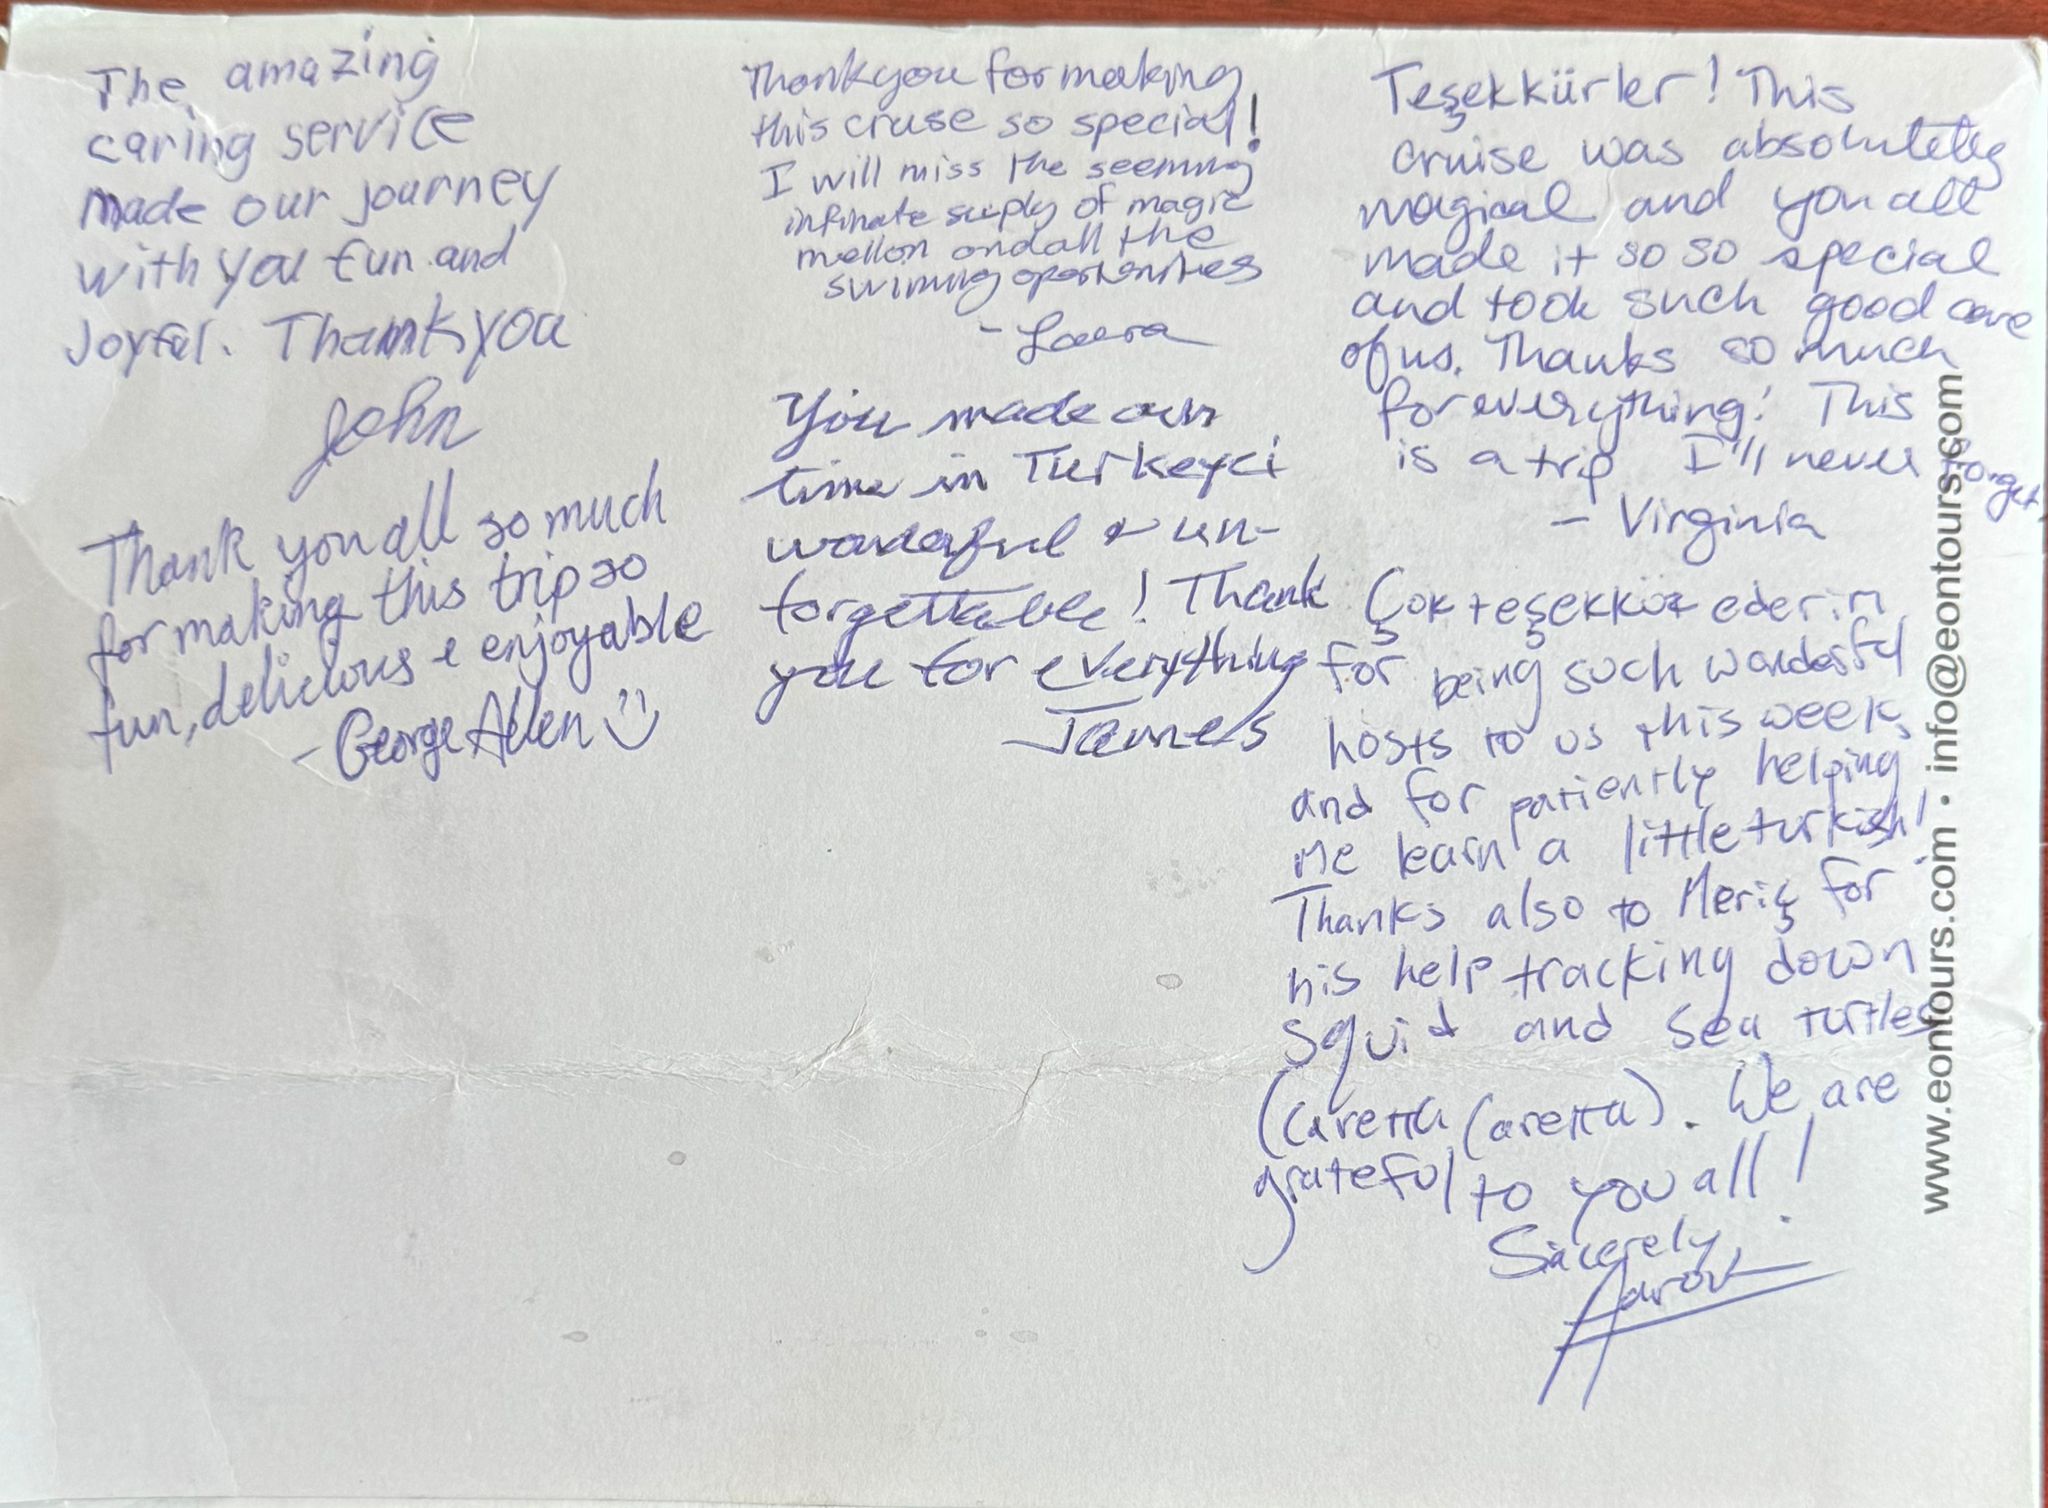 The amazing
caring service
made our journey
with you fun and
Joyful. Thank you
John
Thank you all so much
for making this trip so
fun, delicious & enjoyable
- George Allen
Thank you for making
this cruse so special!
I will miss the seeming
infinate suply of magic
mellon and all the
swiming oportunities
- Laura
You made our
time in Turkeyci
wonderful & un-
forgettable! Thank
you for everything
James
Teşekkürler! This
cruise was absolutely
magical and you all
made it so so special
and took such good care
of us. Thanks so much
for everything! This
is a trip I'll never forget.
- Virginia
Çok teşekkür ederim
for being such wonderful
hosts to us this week,
and for patiently helping
me learn a little turkish!
Thanks also to Meriç for
his help tracking down
squid and sea turtles
(Caretta Caretta). We are
grateful to you all!
Sincerely,
Aaron
www.eontours.com • info@eontours.com